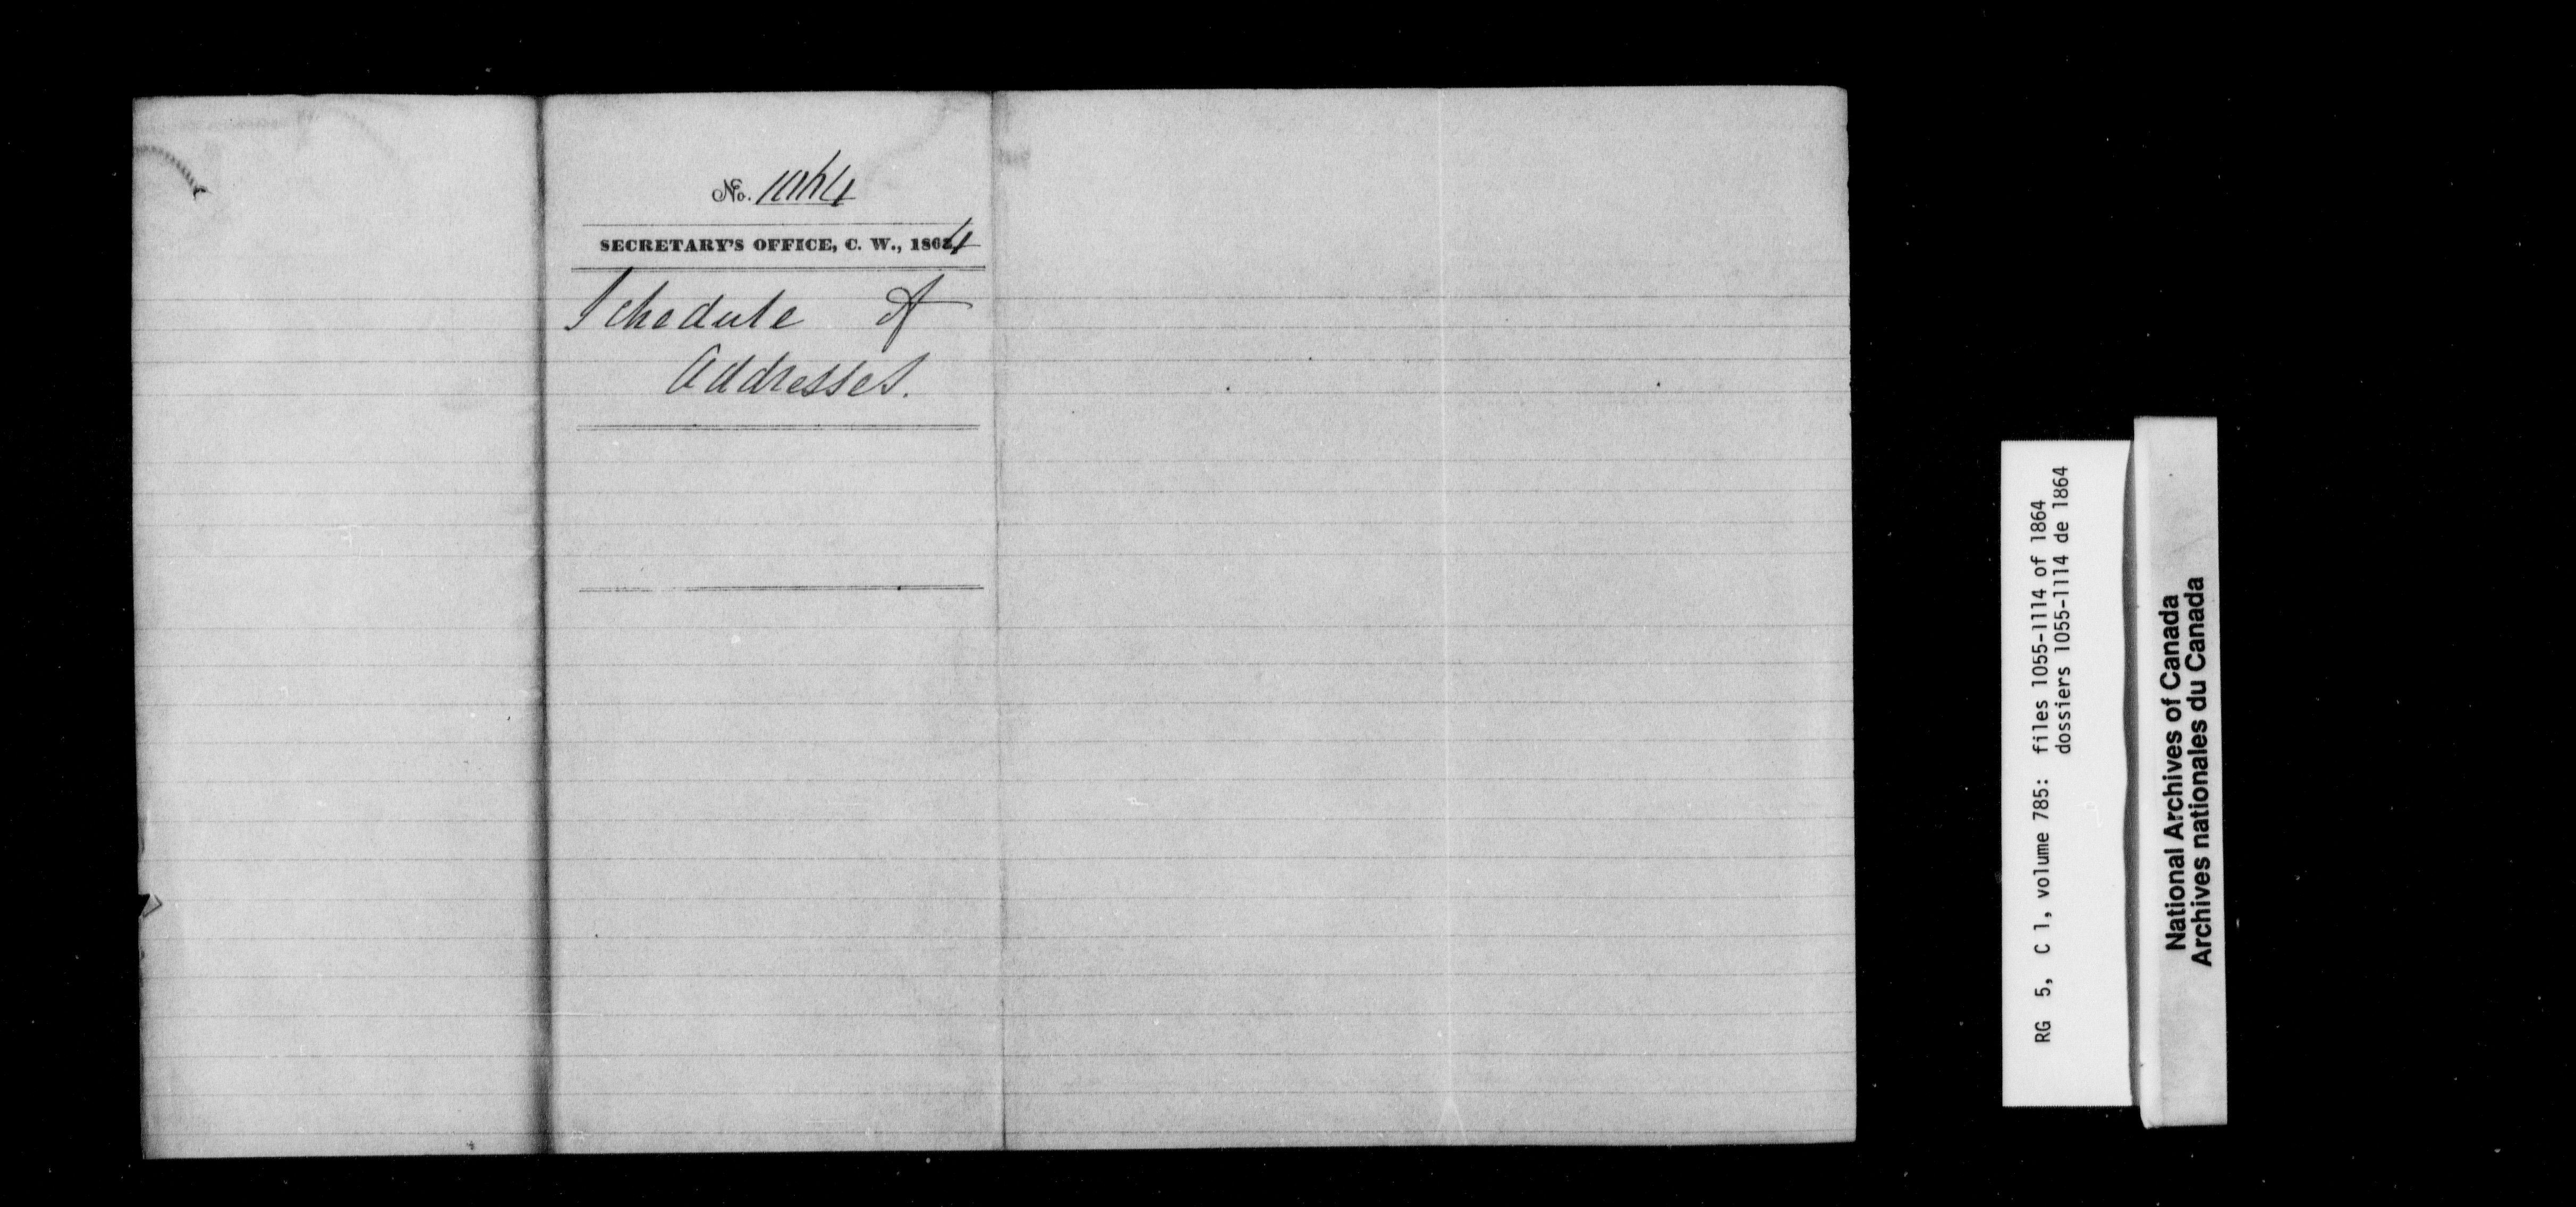 No. 1064
SECRETARY'S OFFICE, C. W., 1864
Schedule of
Addresses.
RG 5, C 1, volume 785: files 1055-1114 of 1864
dossiers 1055-1114 de 1864
National Archives of Canada
Archives nationales du Canada